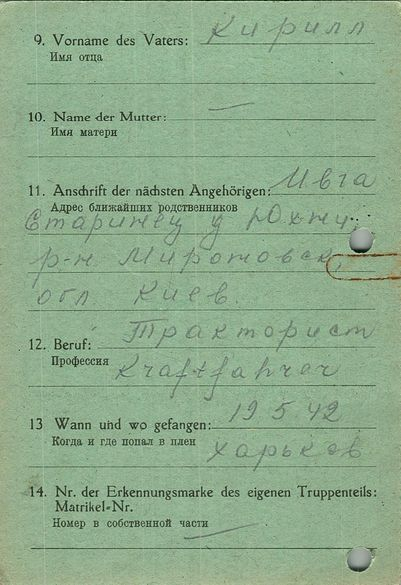 9. Vorname des Vaters: Кирилл
Имя отца
10. Name der Mutter: —
Имя матери
11. Anschrift der nächsten Angehörigen: Ивга
Адрес ближайших родственников
Старинец у
р-н Мироновск,
обл Киев.
12. Beruf: Тракторист
Профессия Kraftfahrer
13 Wann und wo gefangen: 19 5 42
Когда и где попал в плен Харьков
14. Nr. der Erkennungsmarke des eigenen Truppenteils:
Matrikel-Nr.
Номер в собственной части —